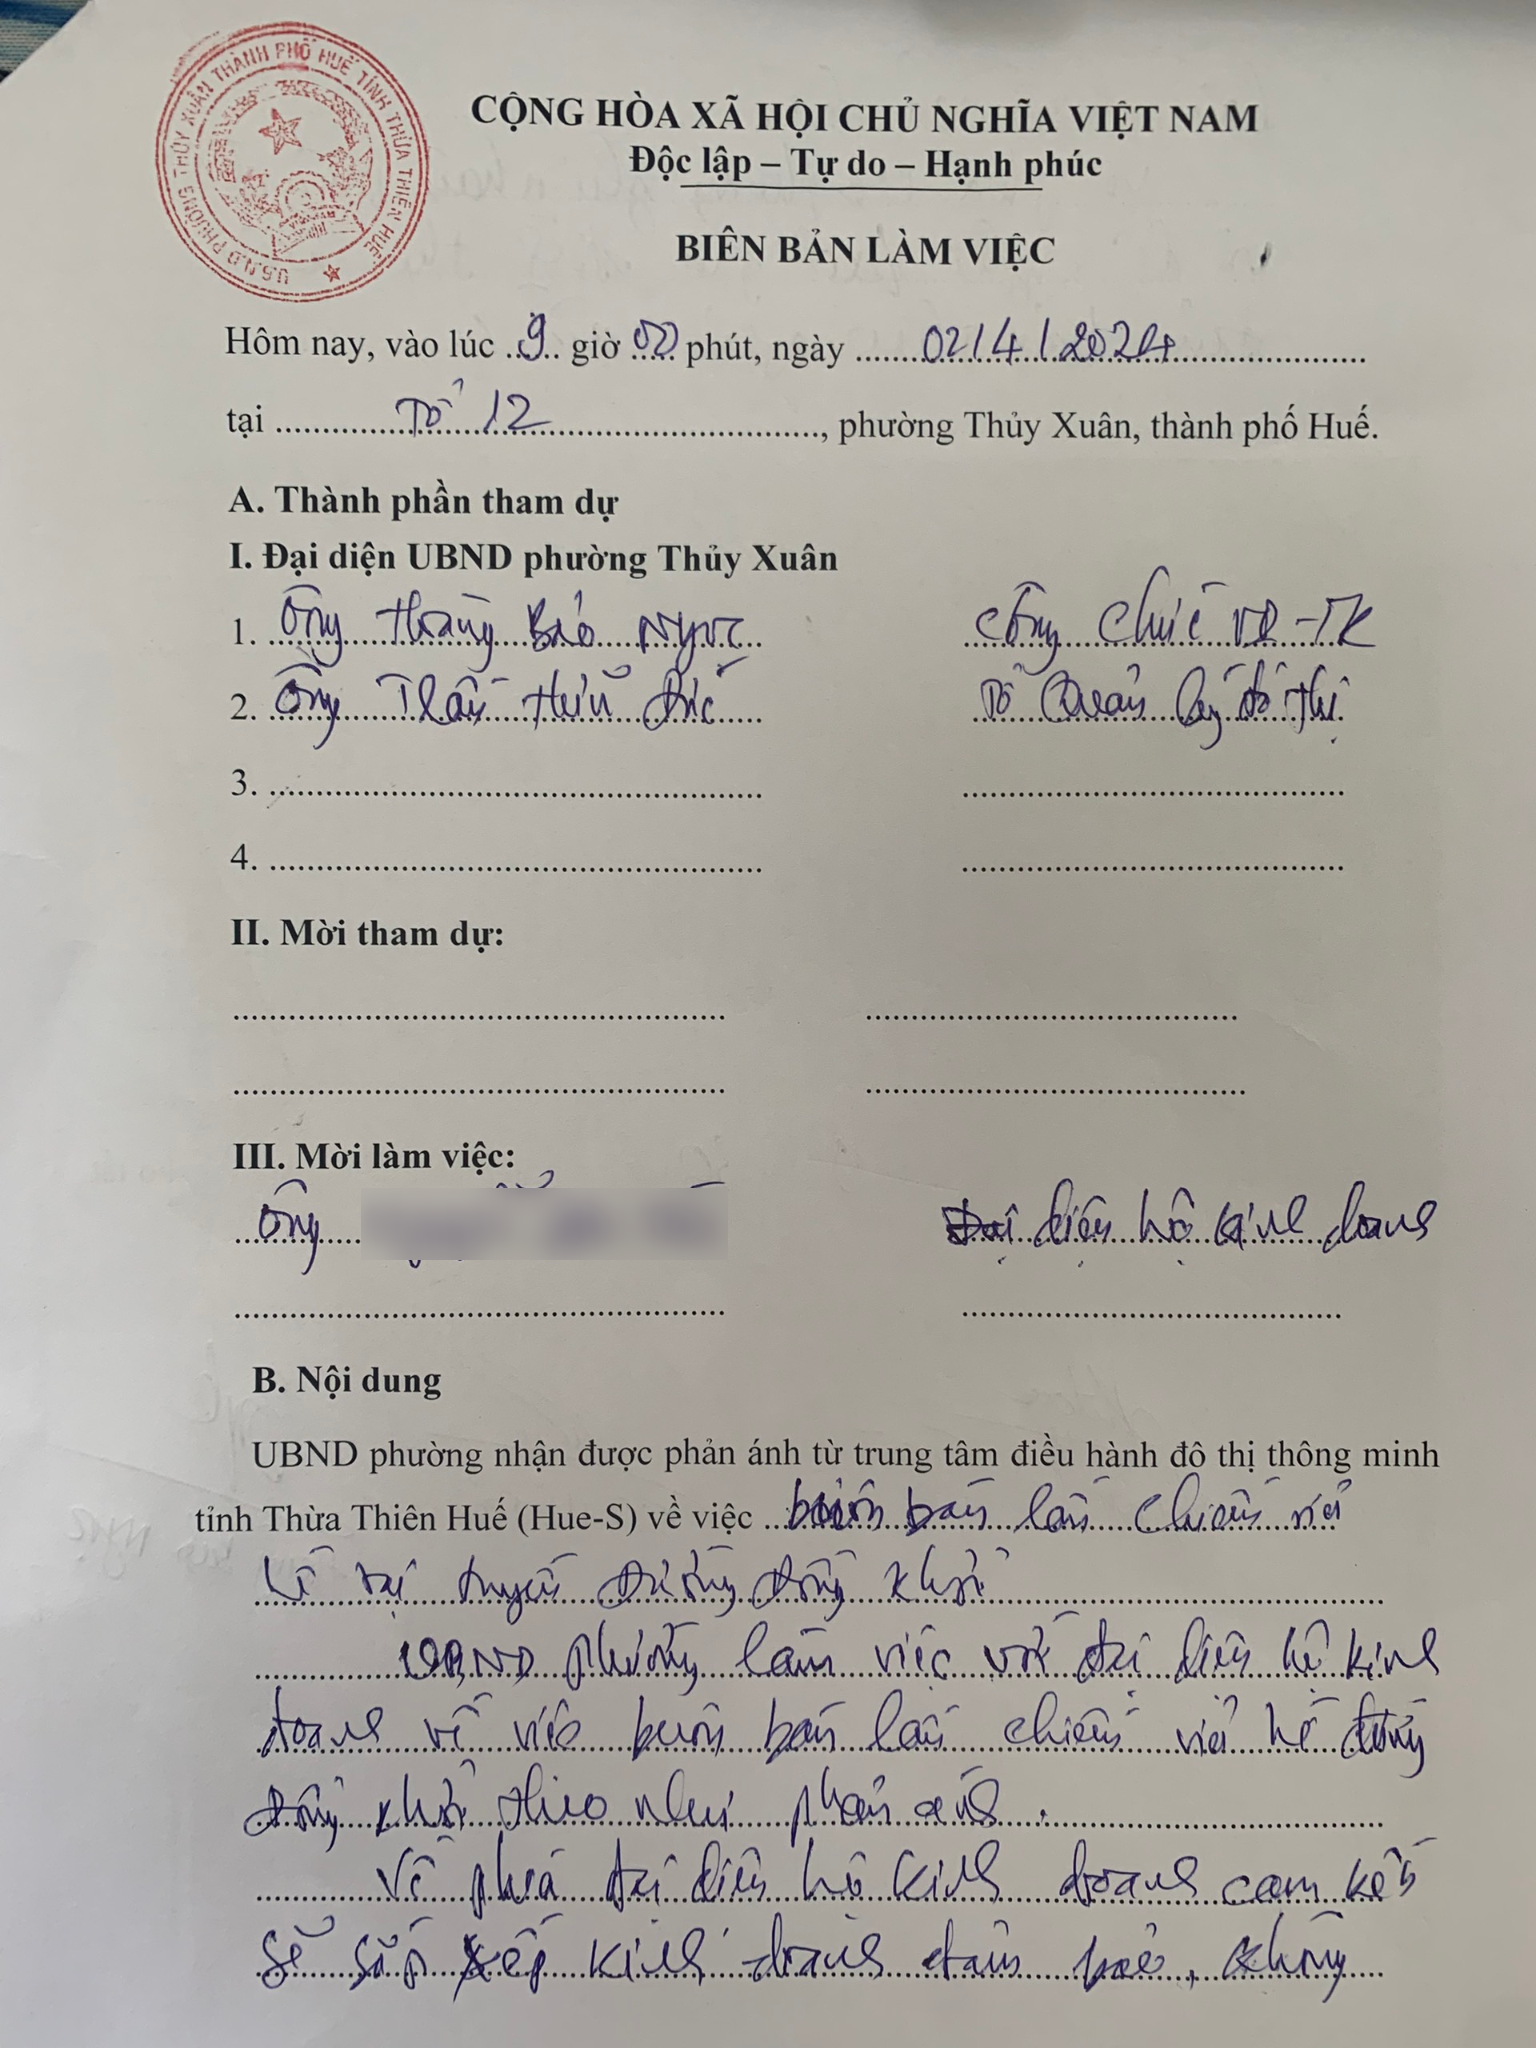 U.B.N.D PHƯỜNG THỦY XUÂN THÀNH PHỐ HUẾ TỈNH THỪA THIÊN HUẾ
CỘNG HÒA XÃ HỘI CHỦ NGHĨA VIỆT NAM
Độc lập – Tự do – Hạnh phúc
BIÊN BẢN LÀM VIỆC
Hôm nay, vào lúc 9 giờ 00 phút, ngày 02/4/2024
tại Tổ 12, phường Thủy Xuân, thành phố Huế.
A. Thành phần tham dự
I. Đại diện UBND phường Thủy Xuân
1. Ông Hoàng Bảo Ngọc Công chức VP-TK
2. Ông Trần Hữu Đức Tổ Quản lý đô thị
3.
4.
II. Mời tham dự:
III. Mời làm việc:
Ông Đại diện hộ kinh doanh
B. Nội dung
UBND phường nhận được phản ánh từ trung tâm điều hành đô thị thông minh
tỉnh Thừa Thiên Huế (Hue-S) về việc buôn bán lấn chiếm vỉa
hè tại tuyến đường Đồng Khởi
UBND phường làm việc với đại diện hộ kinh
doanh về việc buôn bán lấn chiếm vỉa hè đường
Đồng Khởi theo như phản ánh.
Về phía đại diện hộ kinh doanh cam kết
sẽ sắp xếp kinh doanh đảm bảo, không